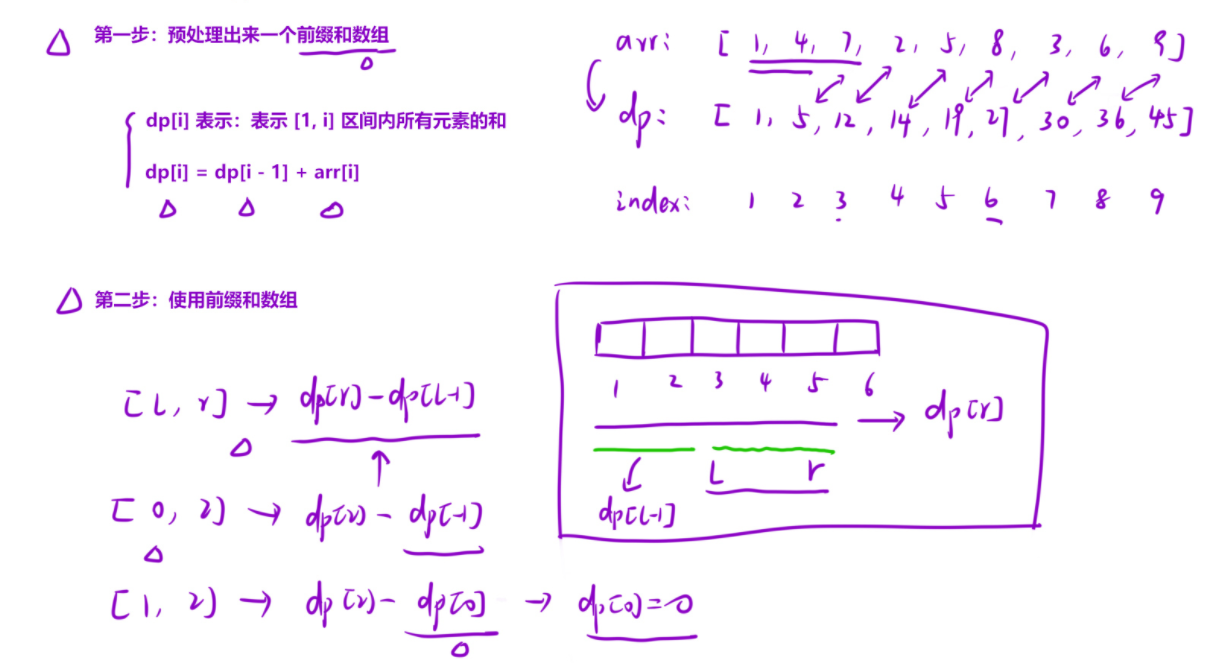 第一步：预处理出来一个前缀和数组
dp[i] 表示：表示 [1, i] 区间内所有元素的和
dp[i] = dp[i - 1] + arr[i]
arr: [ 1, 4, 7, 2, 5, 8, 3, 6, 9 ]
dp: [ 1, 5, 12, 14, 19, 27, 30, 36, 45 ]
index: 1 2 3 4 5 6 7 8 9
第二步：使用前缀和数组
[L, r] → dp[r] - dp[L-1]
[0, 2] → dp[2] - dp[-1]
[1, 2] → dp[2] - dp[0] → dp[0]=0
1 2 3 4 5 6
→ dp[r]
L r
dp[L-1]